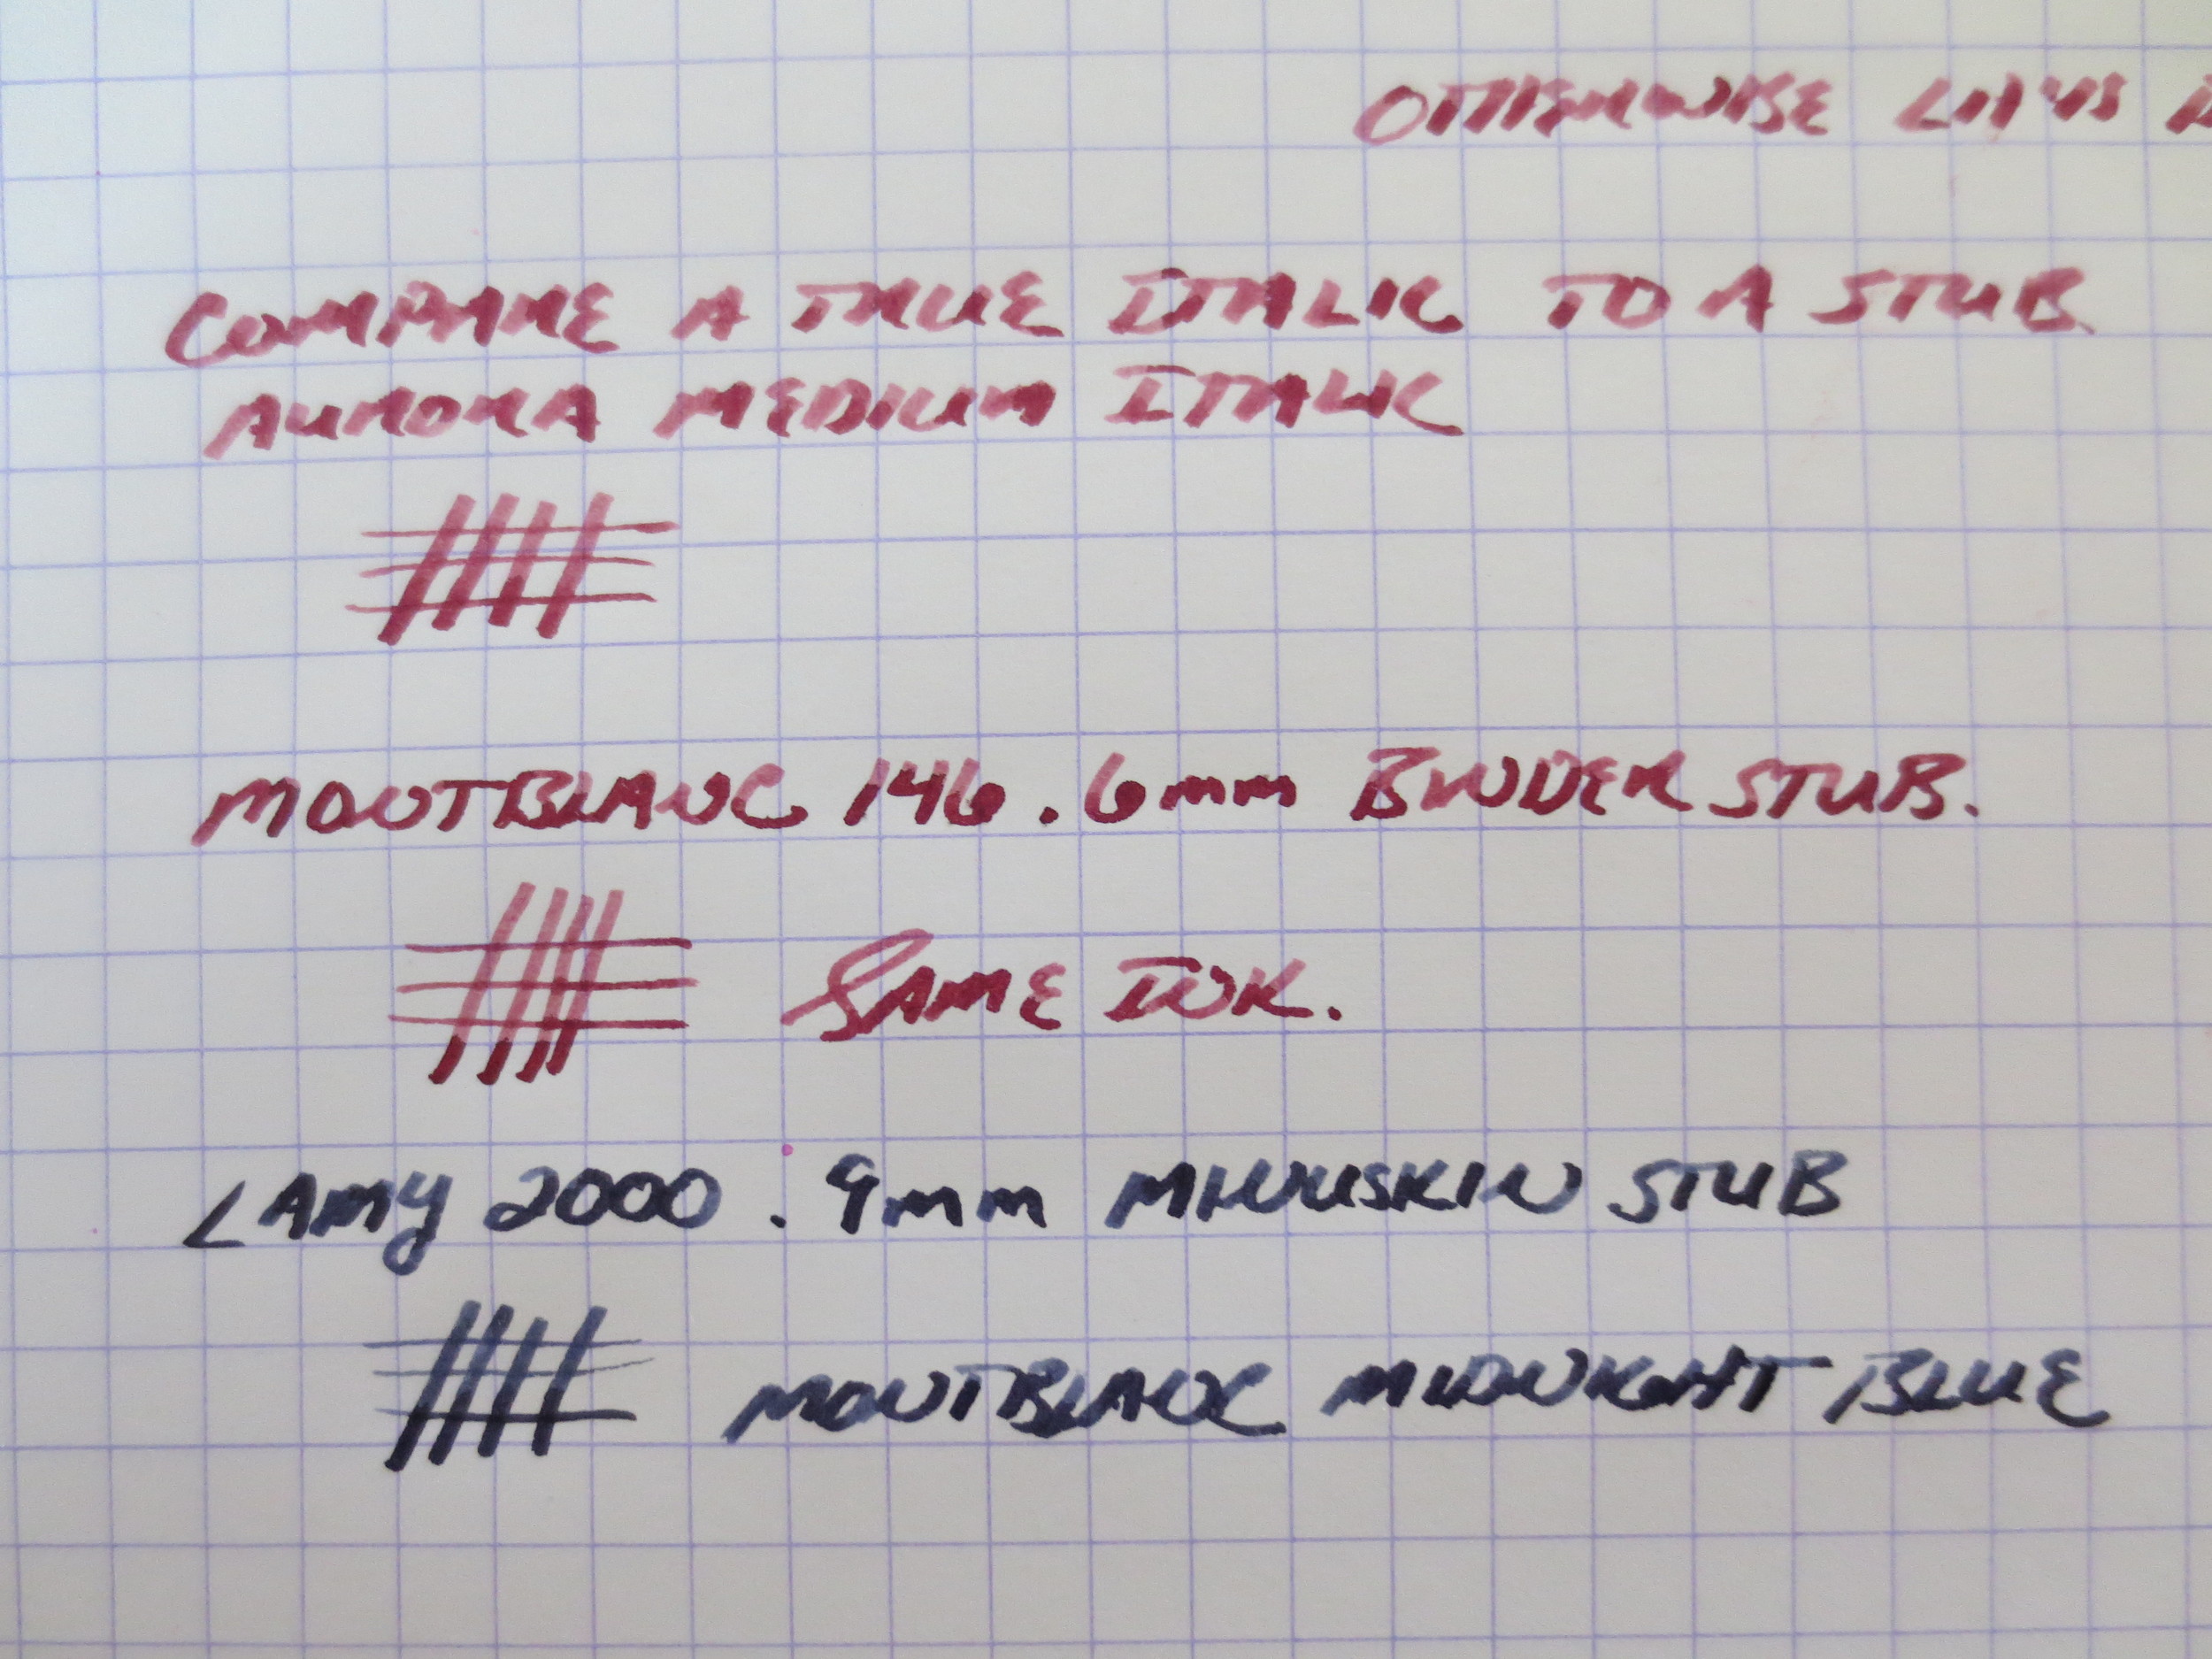 OTHERWISE
COMPARE A TRUE ITALIC TO A STUB.
AURORA MEDIUM ITALIC
MONTBLANC 146 .6mm BINDER STUB.
SAME INK.
LAMY 2000 .9mm MINUSKIN STUB
MONTBLANC MIDNIGHT BLUE